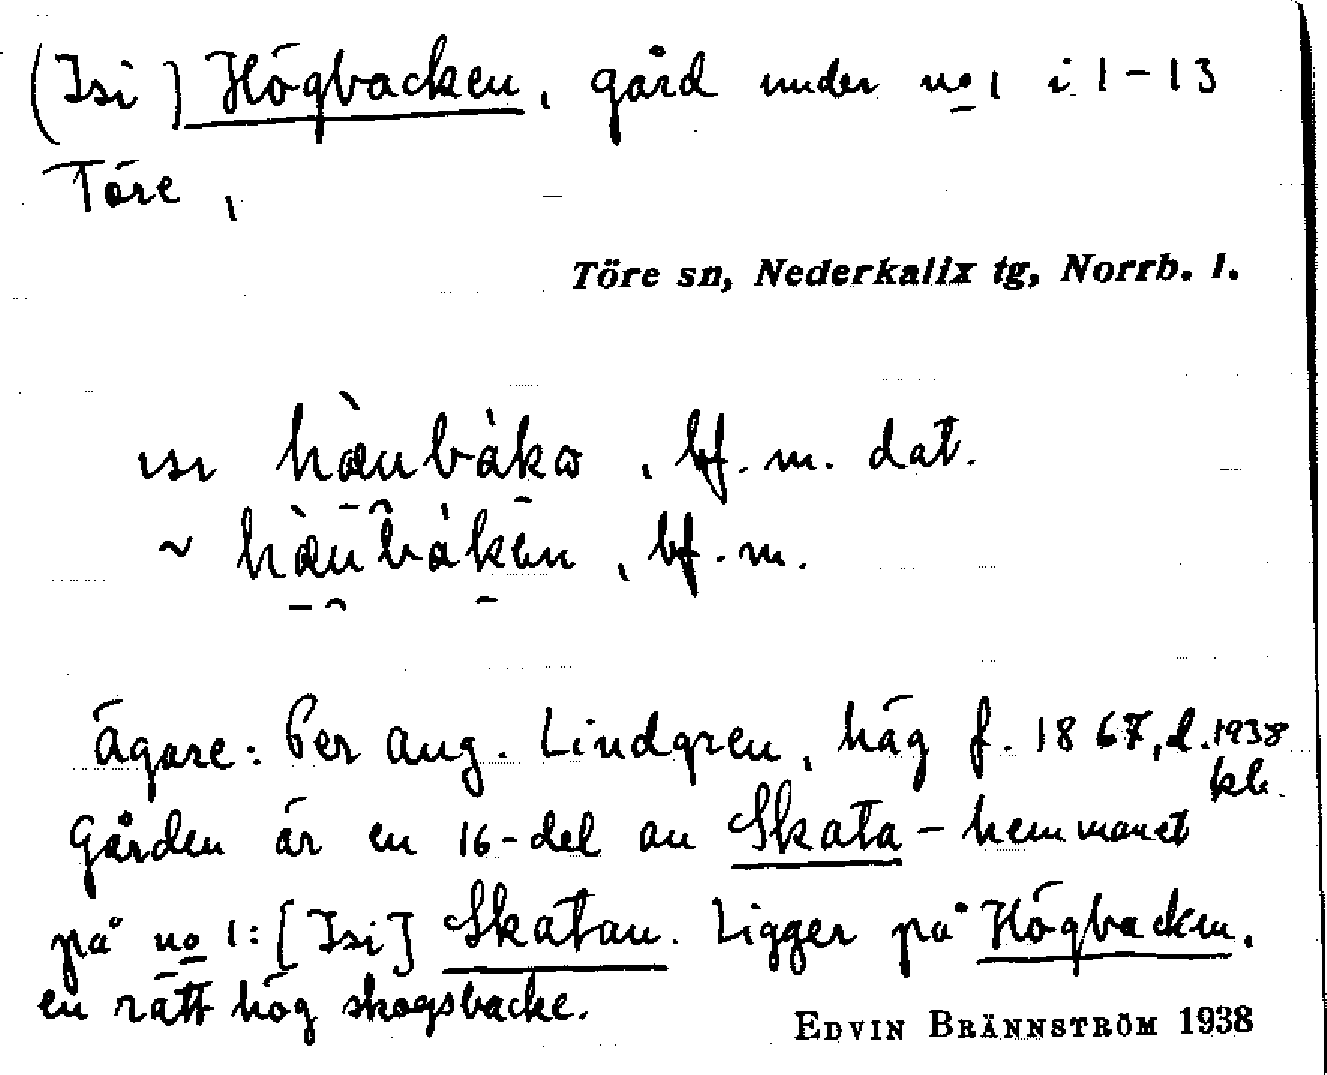 (Isi) Högbacken, gård under no 1 i 1-13
Töre,
Töre sn, Nederkalix tg, Norrb. l.
ısı hàubàka, bf. m. dat.
~ hàubàkən, bf. m.
Ägare: Per Aug. Lindgren, häg f. 1867, d. 1938
kh.
Gården är en 16-del av Skata-hemmanet
på no 1: [Isi] Skatan. Ligger på Högbacken,
en rätt hög skogsbacke.
EDVIN BRÄNNSTRÖM 1938